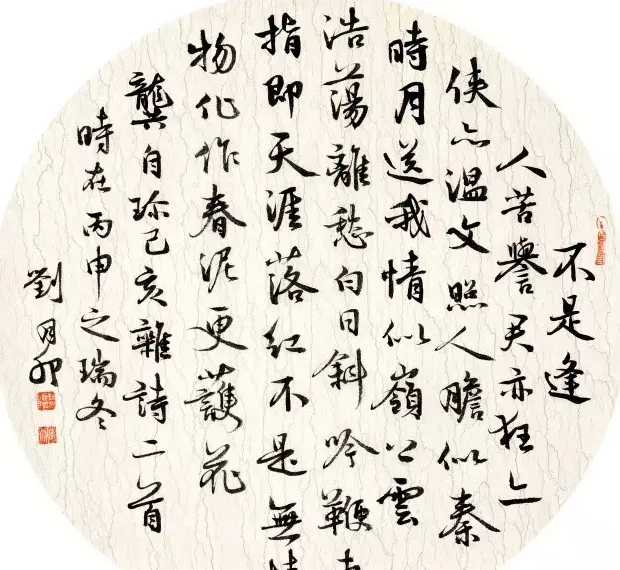 不是逢
人苦譽君亦狂亦
俠亦温文照人膽似秦
時月送我情似嶺上雲
浩蕩離愁白日斜吟鞭
指即天涯落紅不是無
物化作春泥更護花
龔自珍己亥雜詩二首
時在丙申之瑞冬
劉月卯